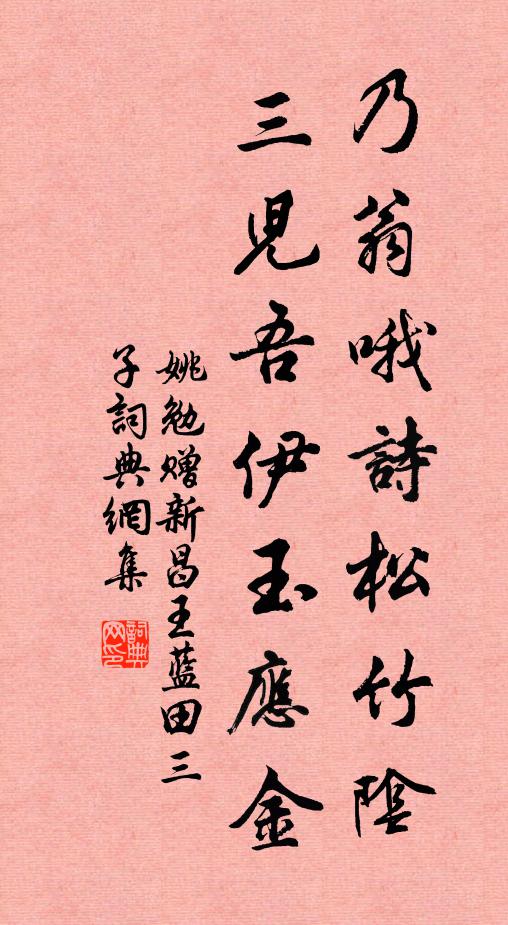 乃翁哦詩松竹陰
三児吾伊玉應金
姚勉贈新昌王藍田三
子詞典網集
詞典网印